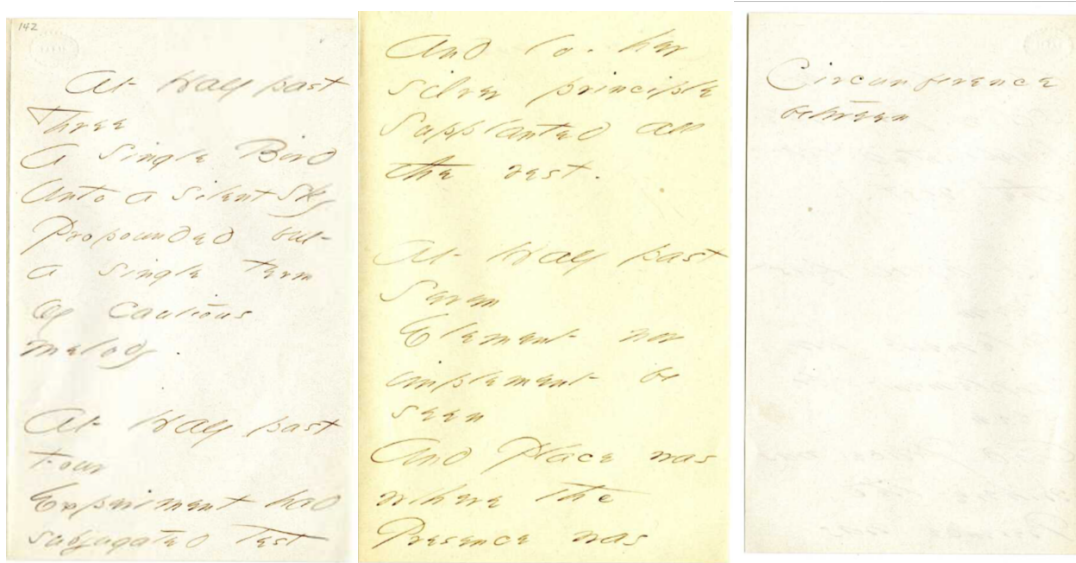 142
At Half past
Three
A Single Bird
Unto a Silent Sky
Propounded but
a single term
Of cautious
melody.
At Half past
Four
Experiment had
subjugated Test
And lo, her
silver principle
Supplanted all
the rest.
At Half past
Seven
Element nor
implement be
seen
And Place was
where the
Presence was
Circumference
between